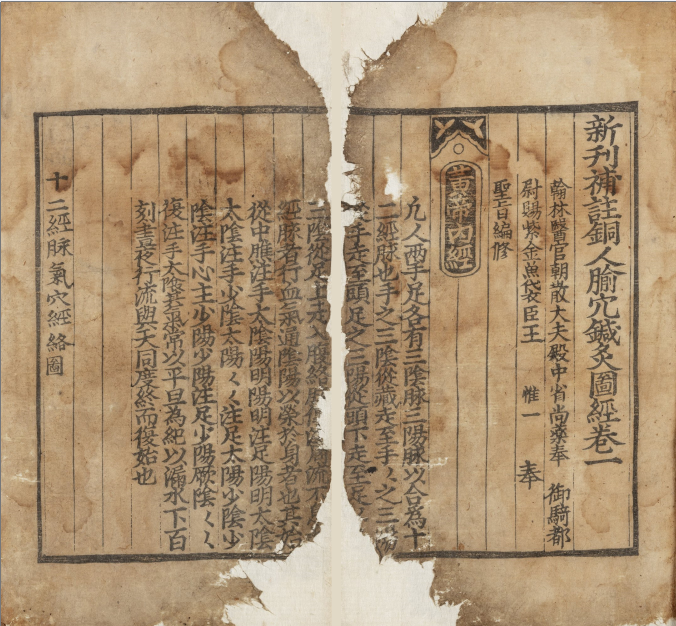 新刊補註銅人腧穴鍼灸圖經卷一
翰林醫官朝散大夫殿中省尚藥奉 御騎都
尉賜紫金魚袋臣王 惟一 奉
聖旨編修
黃帝內經
凢人兩手足各有三陰脉三陽脉以合為十
二經脉也手之三陰從藏走至手〻之三陽
從手走至頭足之三陽從頭下走至足
三陰從足上走入腹絡脉流不
經脉者行血氣通陰陽以榮於身者也其始
從中膲注手太陰陽明陽明注足陽明太陰
太陰注手少陰太陽〻〻注足太陽少陰少
陰注手心主少陽少陽注足少陽厥陰〻〻
復注手太陰其氣常以平旦為紀以漏水下百
刻晝夜行流與天同度終而復始也
十二經脉氣穴經絡圖